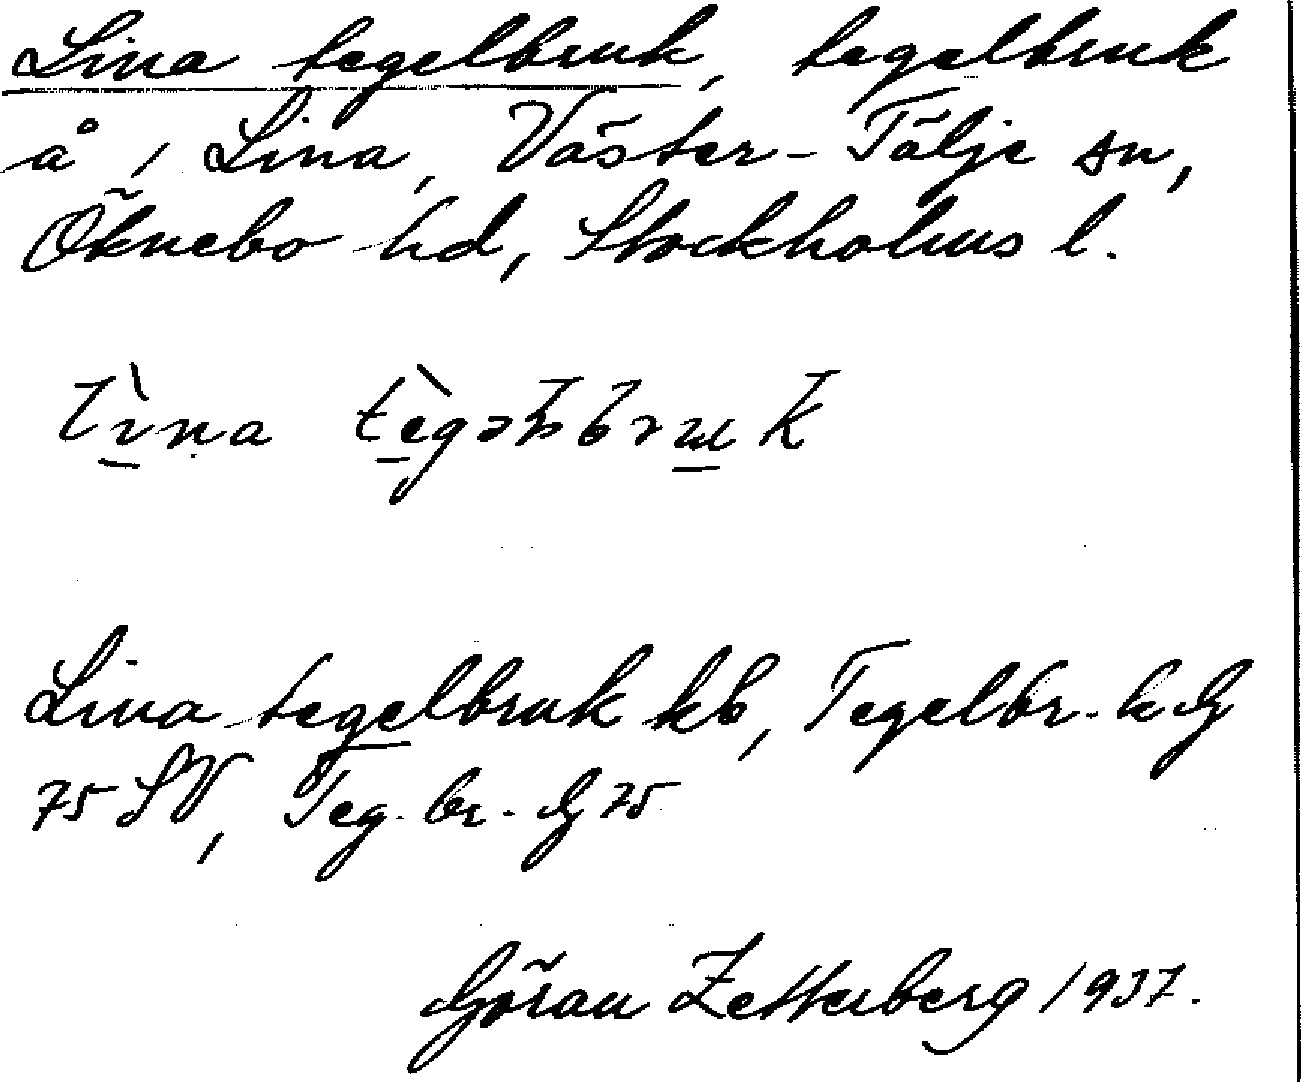 Lina tegelbruk, tegelbruk
å 1 Lina, Väster-Tälje sn,
Öknebo hd, Stockholms l.
lìna tègəlbruk
Lina tegelbruk kb, Tegelbr. k G
75 SV, Teg. br. G 75
Göran Zetterberg 1937.